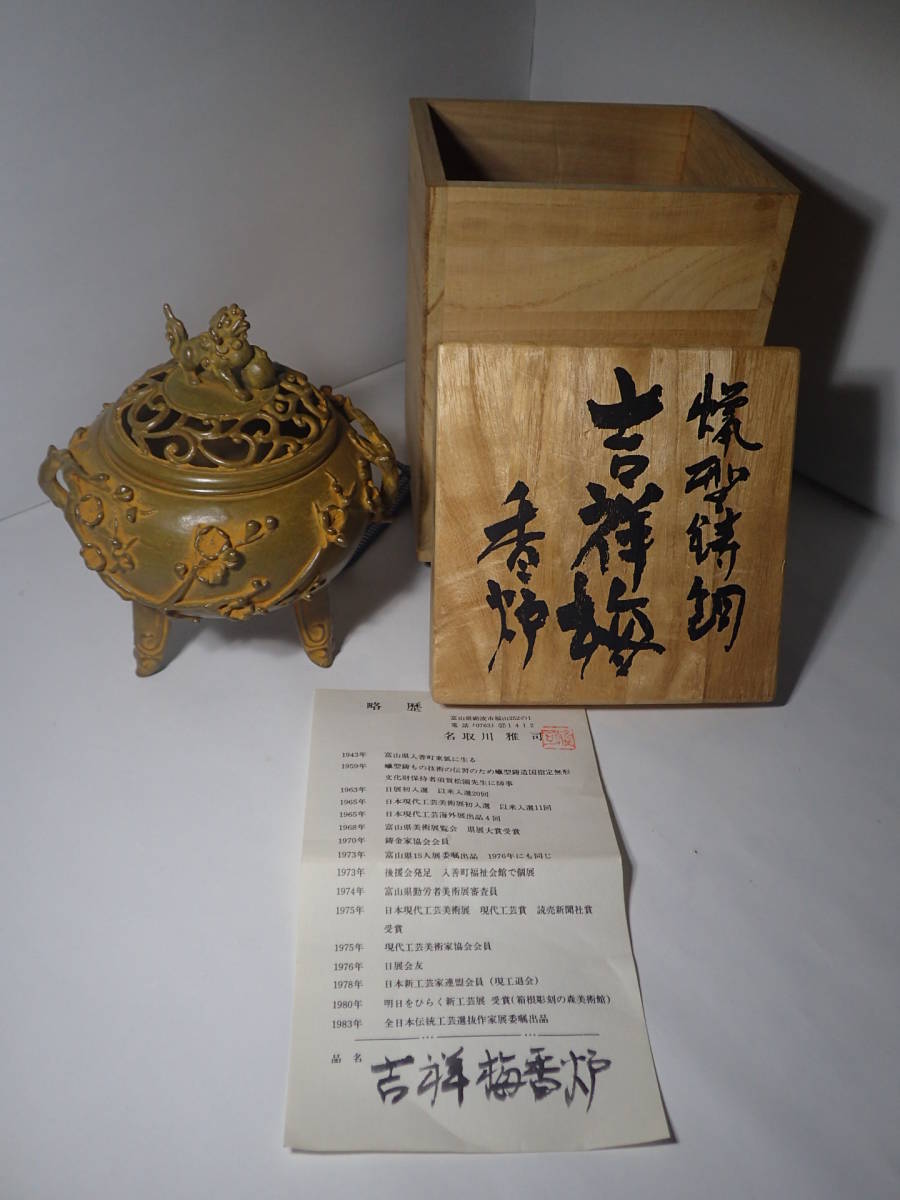 蠟型鋳銅
吉祥梅
香炉
略歴
富山県砺波市福山252の1
電話(0763)㊲1412
名取川雅司
1943年 富山県入善町東狐に生る
1959年 蠟型鋳もの技術の伝習のため蠟型鋳造国指定無形
文化財保持者須賀松園先生に師事
1963年 日展初入選 以来入選20回
1965年 日本現代工芸美術展初入選 以来入選11回
1965年 日本現代工芸海外展出品4回
1968年 富山県美術展覧会 県展大賞受賞
1970年 鋳金家協会会員
1973年 富山県15人展委嘱出品 1976年にも同じ
1973年 後援会発足 入善町福祉会館で個展
1974年 富山県勤労者美術展審査員
1975年 日本現代工芸美術展 現代工芸賞 読売新聞社賞
受賞
1975年 現代工芸美術家協会会員
1976年 日展会友
1978年 日本新工芸家連盟会員(現工退会)
1980年 明日をひらく新工芸展 受賞(箱根彫刻の森美術館)
1983年 全日本伝統工芸選抜作家展委嘱出品
品名 吉祥梅香炉